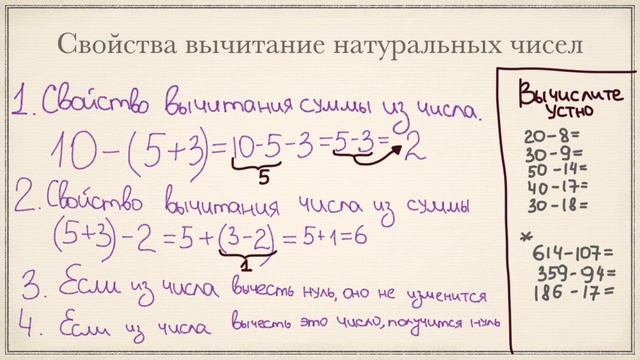 Свойства вычитание натуральных чисел
1. Свойство вычитания суммы из числа.
10-(5+3)=10-5-3=5-3=2
5
2. Свойство вычитания числа из суммы
(5+3)-2=5+(3-2)=5+1=6
1
3. Если из числа вычесть нуль, оно не изменится
4. Если из числа вычесть это число, получится нуль
Вычислите
устно
20-8=
30-9=
50-14=
40-17=
30-18=
*
614-107=
359-94=
186-17=